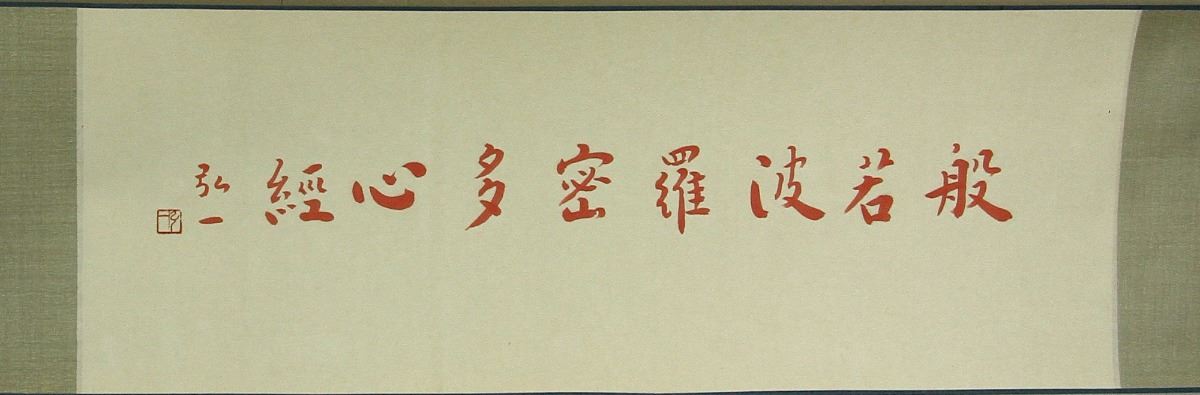 般若波羅密多心經
弘一